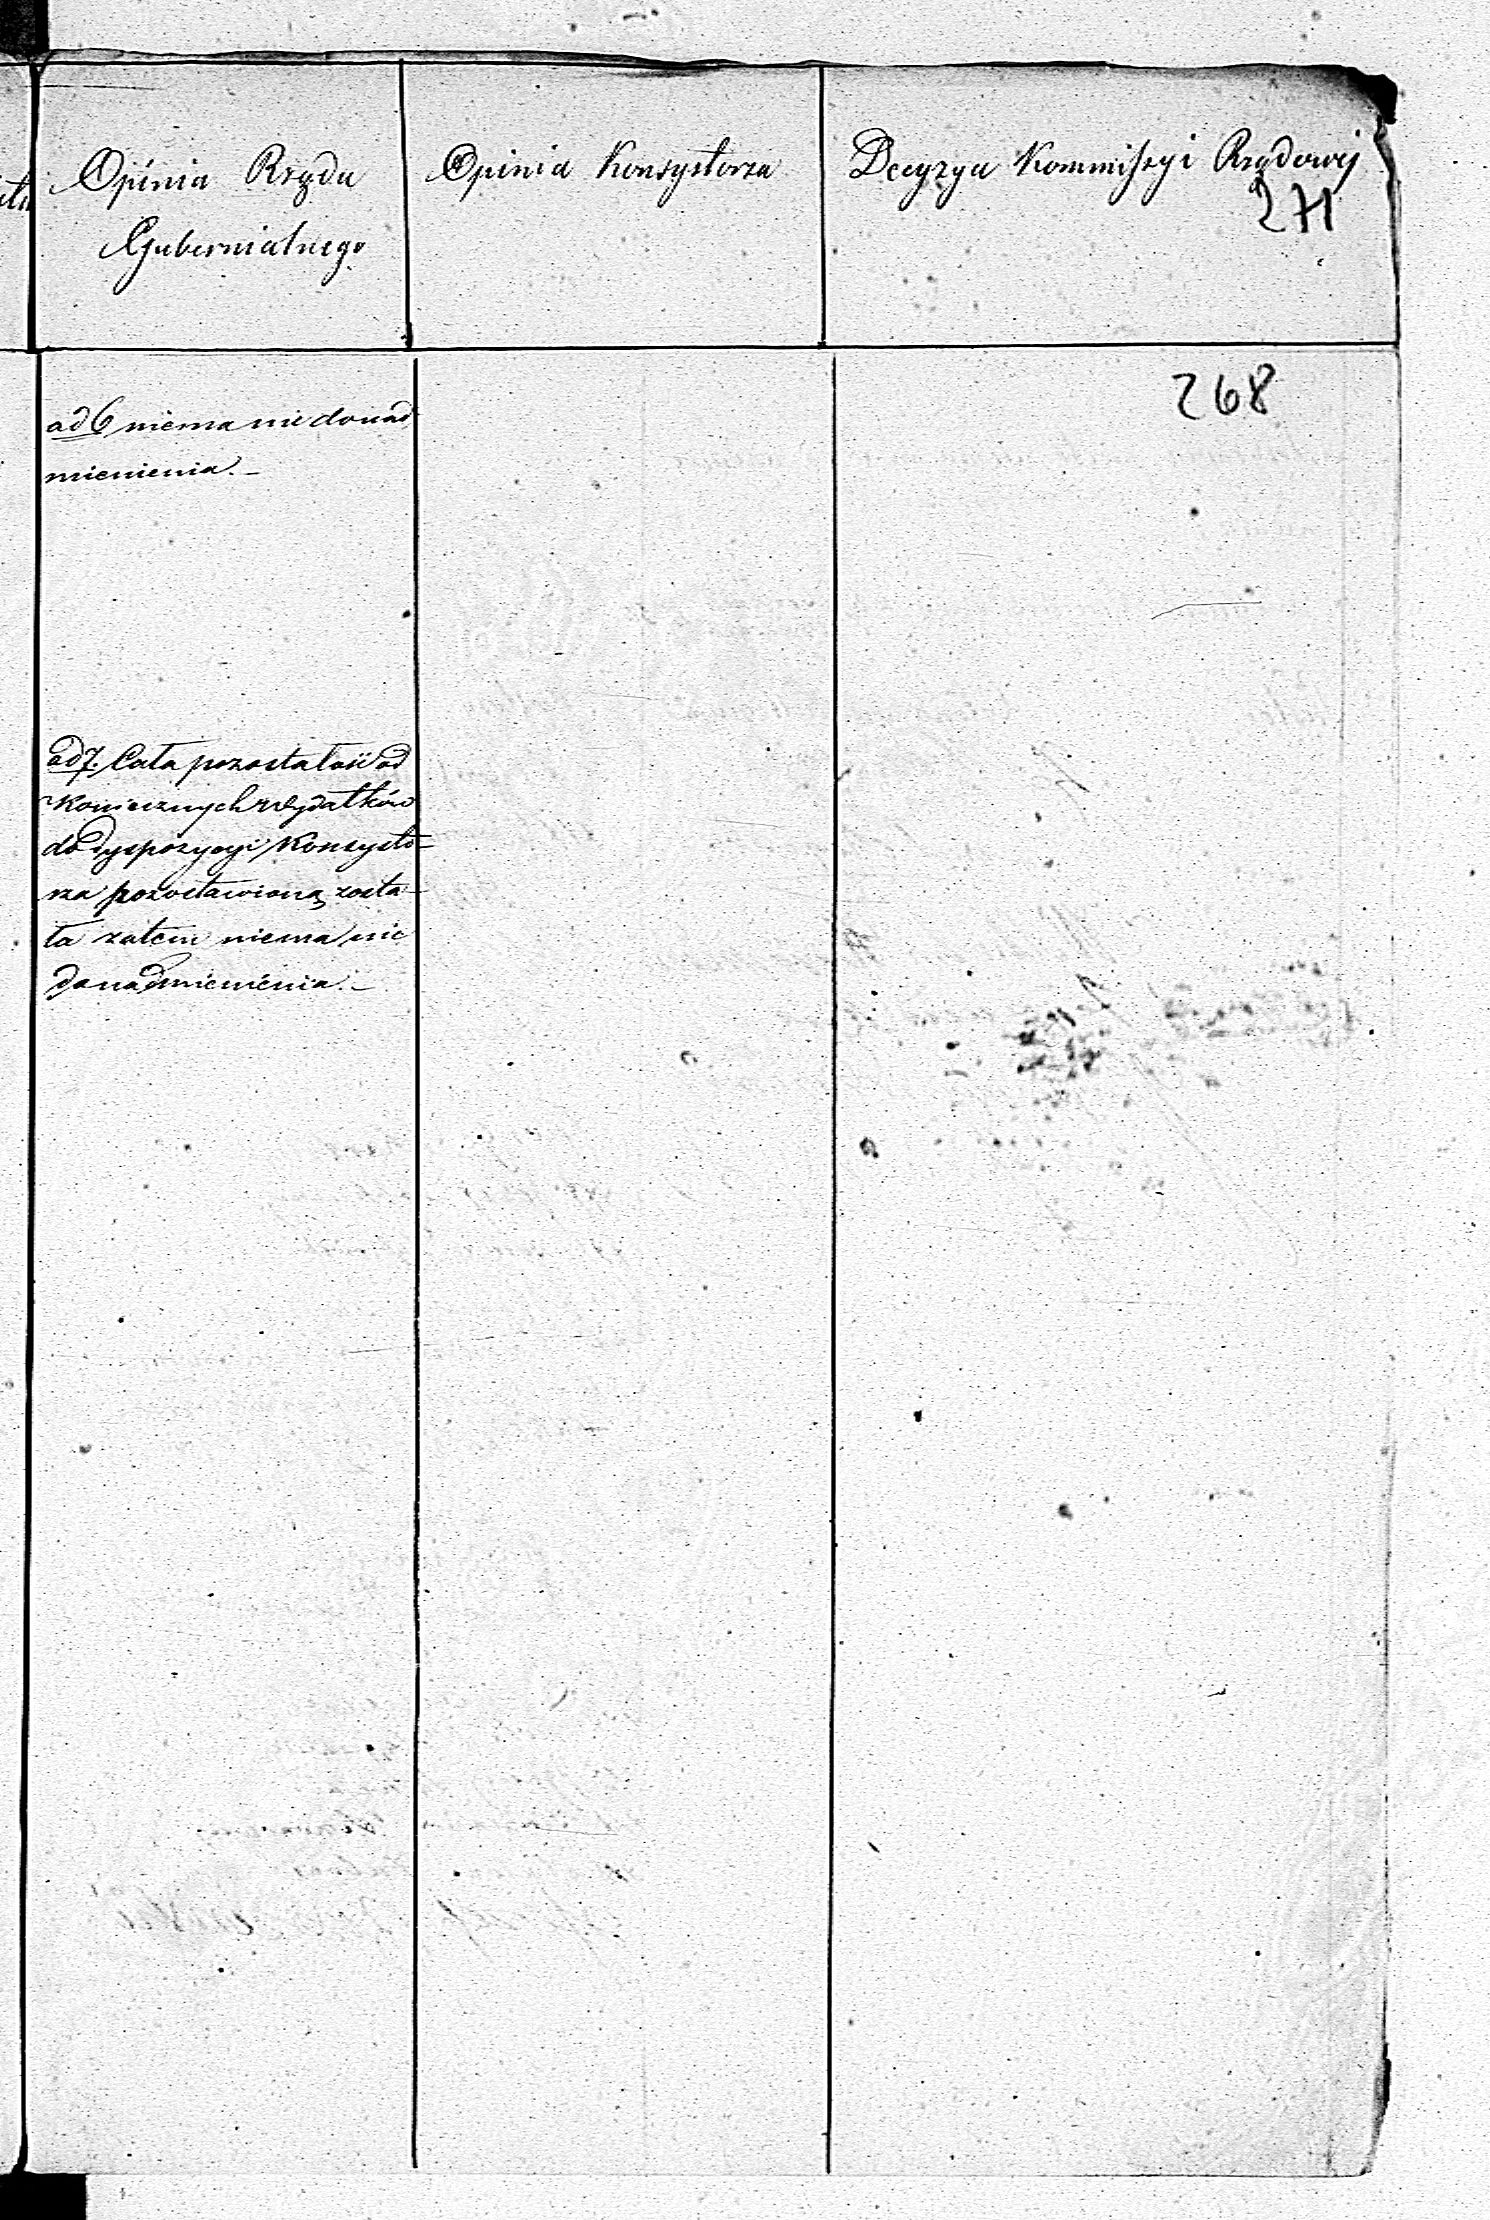 Opinia Rządu
Gubernialnego
Opinia Konsystorza
Decyzya Kommissyi Rządowej
271
268
ad 6 niema nic donad
mienienia. –
ad 7. Cała pozostałość od
koniecznych wydatków
do dyspozycyi Konsysto-
rza pozostawioną zosta-
ła zatem niema nic
donadmienienia. –